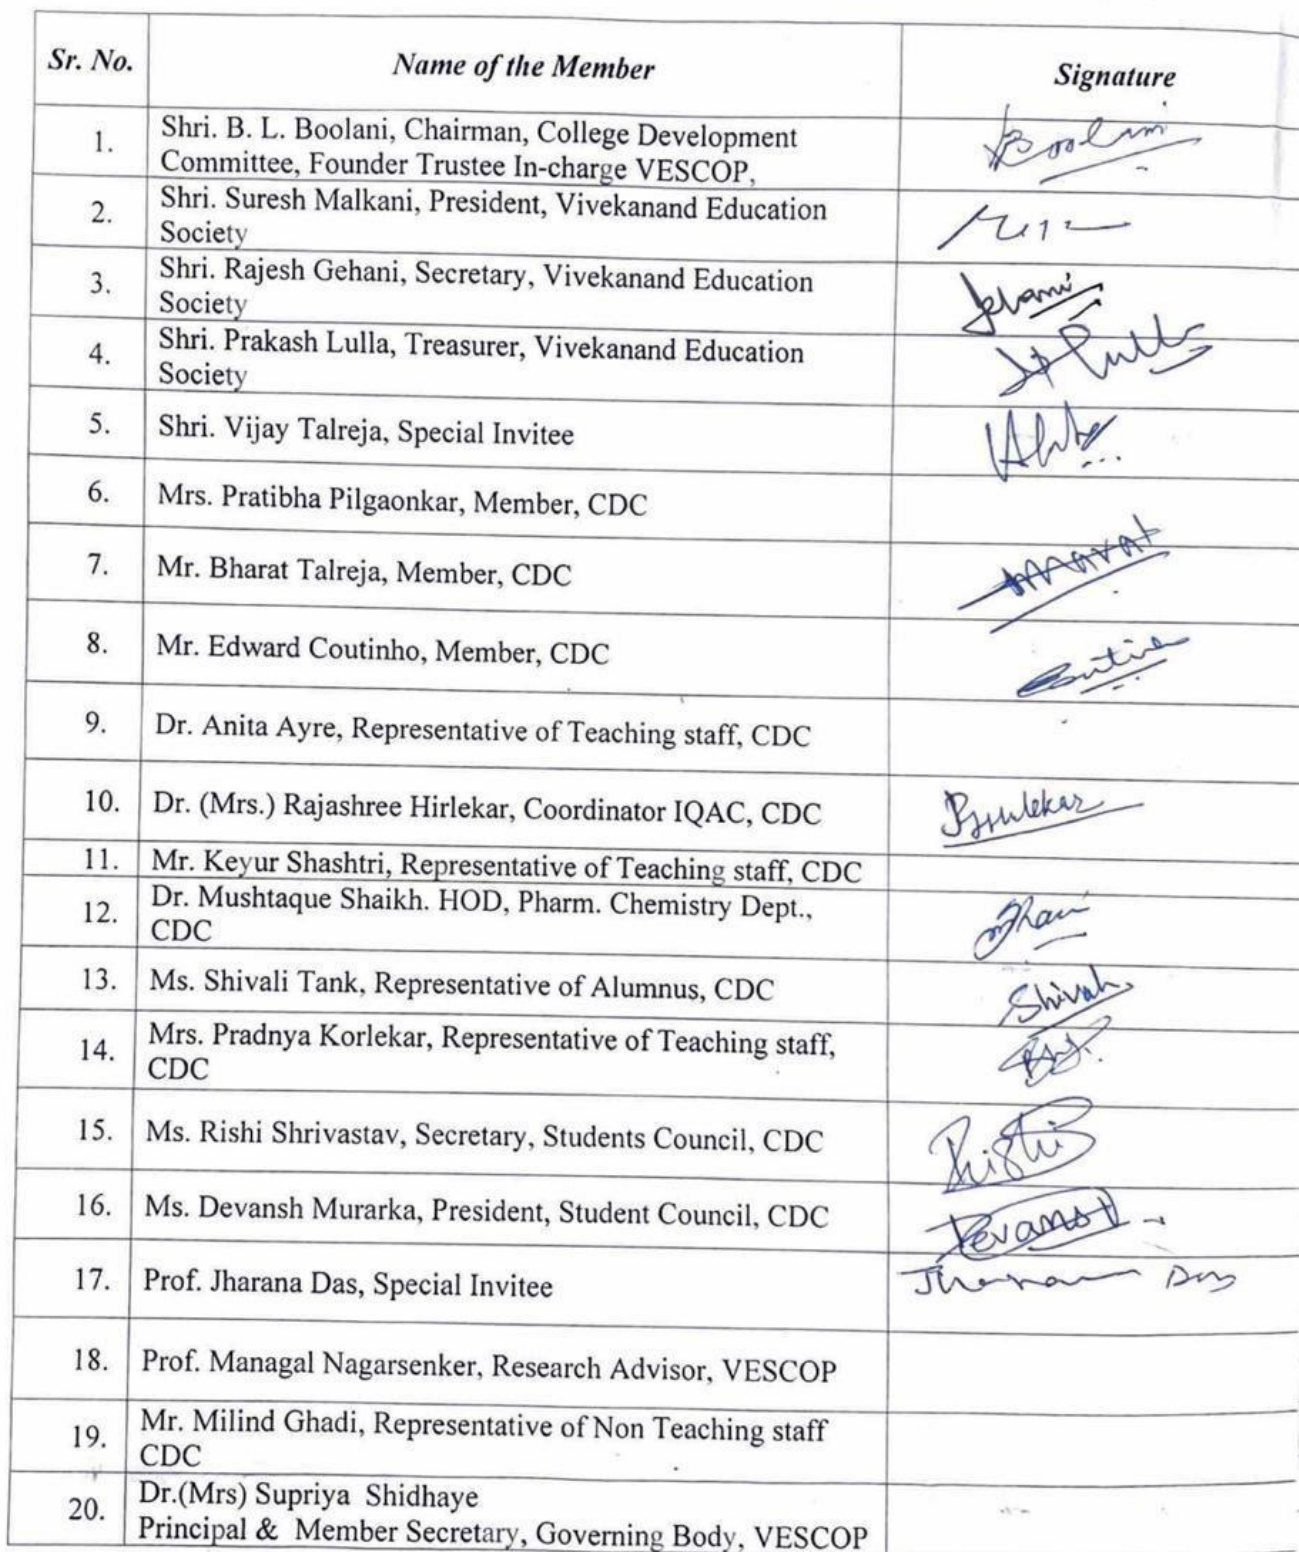 Sr. No. Name of the Member Signature
1. Shri. B. L. Boolani, Chairman, College Development
Committee, Founder Trustee In-charge VESCOP,
Boolani
2. Shri. Suresh Malkani, President, Vivekanand Education
Society
3. Shri. Rajesh Gehani, Secretary, Vivekanand Education
Society
4. Shri. Prakash Lulla, Treasurer, Vivekanand Education
Society
Lulla
5. Shri. Vijay Talreja, Special Invitee
6. Mrs. Pratibha Pilgaonkar, Member, CDC
7. Mr. Bharat Talreja, Member, CDC
8. Mr. Edward Coutinho, Member, CDC
9. Dr. Anita Ayre, Representative of Teaching staff, CDC
10. Dr. (Mrs.) Rajashree Hirlekar, Coordinator IQAC, CDC
11. Mr. Keyur Shashtri, Representative of Teaching staff, CDC
12. Dr. Mushtaque Shaikh. HOD, Pharm. Chemistry Dept.,
CDC
13. Ms. Shivali Tank, Representative of Alumnus, CDC
Shivali
14. Mrs. Pradnya Korlekar, Representative of Teaching staff,
CDC
15. Ms. Rishi Shrivastav, Secretary, Students Council, CDC
16. Ms. Devansh Murarka, President, Student Council, CDC
Devansh
17. Prof. Jharana Das, Special Invitee
Jharana Das
18. Prof. Managal Nagarsenker, Research Advisor, VESCOP
19. Mr. Milind Ghadi, Representative of Non Teaching staff
CDC
20. Dr.(Mrs) Supriya Shidhaye
Principal & Member Secretary, Governing Body, VESCOP